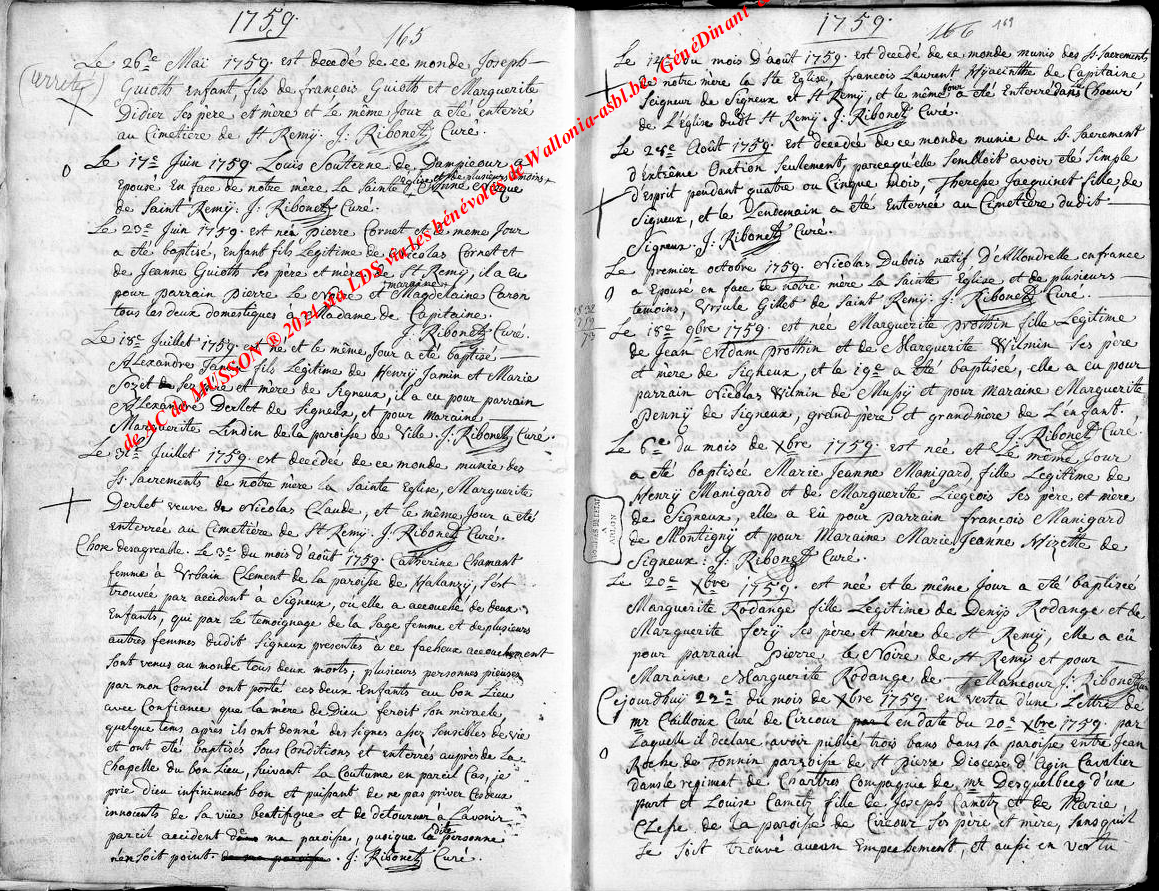 1759.
165
Le 26e Mai 1759 est decedé de ce monde Joseph
Guioth enfant, fils de francois Guioth et Marguerite
Didier ses père et mère et le même jour a été enterré
au Cimetière de St Remy. J: Ribonet Curé.
Le 17e Juin 1759 Louis de Dampicour a
Epousé En face de notre mère La Sainte Eglise et de plusieurs temoins + Anne
de Saint Remy. J: Ribonet Curé.
Le 23e Juin 1759 est né Pierre Cornet et le meme Jour
a été baptisé, enfant fils Legitime de Nicolas Cornet et
de Jeanne Guioth ses père et mère de St Remy, il a eu
pour parrain Pierre Le Noire et maraine + Magdelaine Caron
tous les deux domestiques à Madame de Capitaine.
J. Ribonet Curé.
Le 18e Juillet 1759 est né et le même Jour a été baptisé
Alexandre Jamin fils Legitime de Henry Jamin et Marie
Sozet ses père et mère de Signeux, il a eu pour parrain
Alexandre Derlet de Signeux, et pour maraine
Marguerite Lindin de la paroisse de Ville. J. Ribonet Curé.
Le 31e Juillet 1759 est decedée de ce monde munie des
St. Sacrements de notre mère la Sainte Eglise, Marguerite
Derlet veuve de Nicolas Claude, et le même Jour a été
enterrée au Cimetière de St Remy. J. Ribonet Curé.
Chose desagreable. Le 3e du mois d'août 1759 Catherine Chamant
femme à Urbain Clement de la paroisse de Halanzy, s'est
trouvée par accident a Signeux, ou elle a accouché de deux
Enfants, qui par le temoignage de la sage femme et de plusieurs
autres femmes dudit Signeux presentes à ce facheux accouchement
sont venus au monde tous deux morts, plusieurs personnes pieuses
par mon Conseil ont porté ces deux Enfants au bon Lieu
avec Confiance que la mère de Dieu feroit son miracle,
quelque tems apres ils ont donné des signes assez sensibles de vie
et ont été baptisés sous Conditions et enterrés auprès de La
Chapelle du bon Lieu, suivant La Coutume en pareil Cas, je
prie dieu infiniment bon et puissant de ne pas priver Ces deux
innocents de sa vüe beatifique et de detourner à L'avenir
pareil accident de ma paroisse, quoique la dite personne
n'en soit point de ma paroisse. J: Ribonet Curé.
1759.
166
169
Le 14e du mois d'août 1759 est decedé de ce monde munis des St. Sacrements
de notre mère la Ste Eglise, francois Laurent Hyacinthe de Capitaine
Seigneur de Signeux et St Remy, et le même jour a été Enterré dans le Choeur
de L'Eglise dudt St Remy. J. Ribonet Curé.
Le 28e Août 1759 est decedée de ce monde munie du St. Sacrement
d'Extreme Onction seulement, parcequ'elle sembloit avoir été simple
d'Esprit pendant quatre ou Cinque mois, Therese Jacquinet fille de
Signeux, et le Lendemain a été Enterrée au Cimetière dudit
Signeux. J: Ribonet Curé.
Le premier octobre 1759 Nicolas Dubois natif d'Allondrelle en france
a Epousé en face de notre mère La Sainte Eglise et de plusieurs
temoins, Ursule Gillet de Saint Remy. J: Ribonet Curé.
Le 18e 9bre 1759 est née Marguerite Prothin fille Legitime
de Jean Adam Prothin et de Marguerite Wilmin ses père
et mère de Signeux, et le 19e a été baptisée, elle a eu pour
parrain Nicolas Wilmin de Mussy et pour maraine Marguerite
Penny de Signeux, grand père et grand mère de L'enfant.
J. Ribonet Curé.
Le 6e du mois de Xbre 1759 est née et Le même Jour
a été baptisée Marie Jeanne Manigard, fille Legitime de
Henry Manigard et de Marguerite Liegeois ses père et mère
de Signeux, elle a Eû pour parrain francois Manigard
de Montigny et pour Maraine Marie Jeanne Nizette de
Signeux. J: Ribonet Curé.
Le 20e Xbre 1759 est née et le même Jour a été baptisée
Marguerite Rodange fille Legitime de Denys Rodange et de
Marguerite ses père et mère de St Remy, elle a eû
pour parrain Pierre le Noire de St Remy et pour
Maraine Marguerite Rodange de J. Ribonet
Cejourdhuy 22e du mois de Xbre 1759 en vertu d'une Lettre de
mr Chilloux Curé de Circour en date du 20e Xbre 1759 par
Laquelle il declare avoir publié trois bans dans sa paroisse entre Jean
Roche de Tonnin paroisse de St Pierre Diocese d'Agin Cavalier
dans le regiment de Chartres Compagnie de mr d'une
part et Louise Cametz fille de Joseph Cametz et de Marie
de la paroisse de Circour ses père et mère, sans qu'il
se soit trouvé aucun Empechement, et aussi en vertu
de AC de MUSSON ® 2024 via LDS via les bénévoles de Wallonia-asbl.be, GénéDinant &